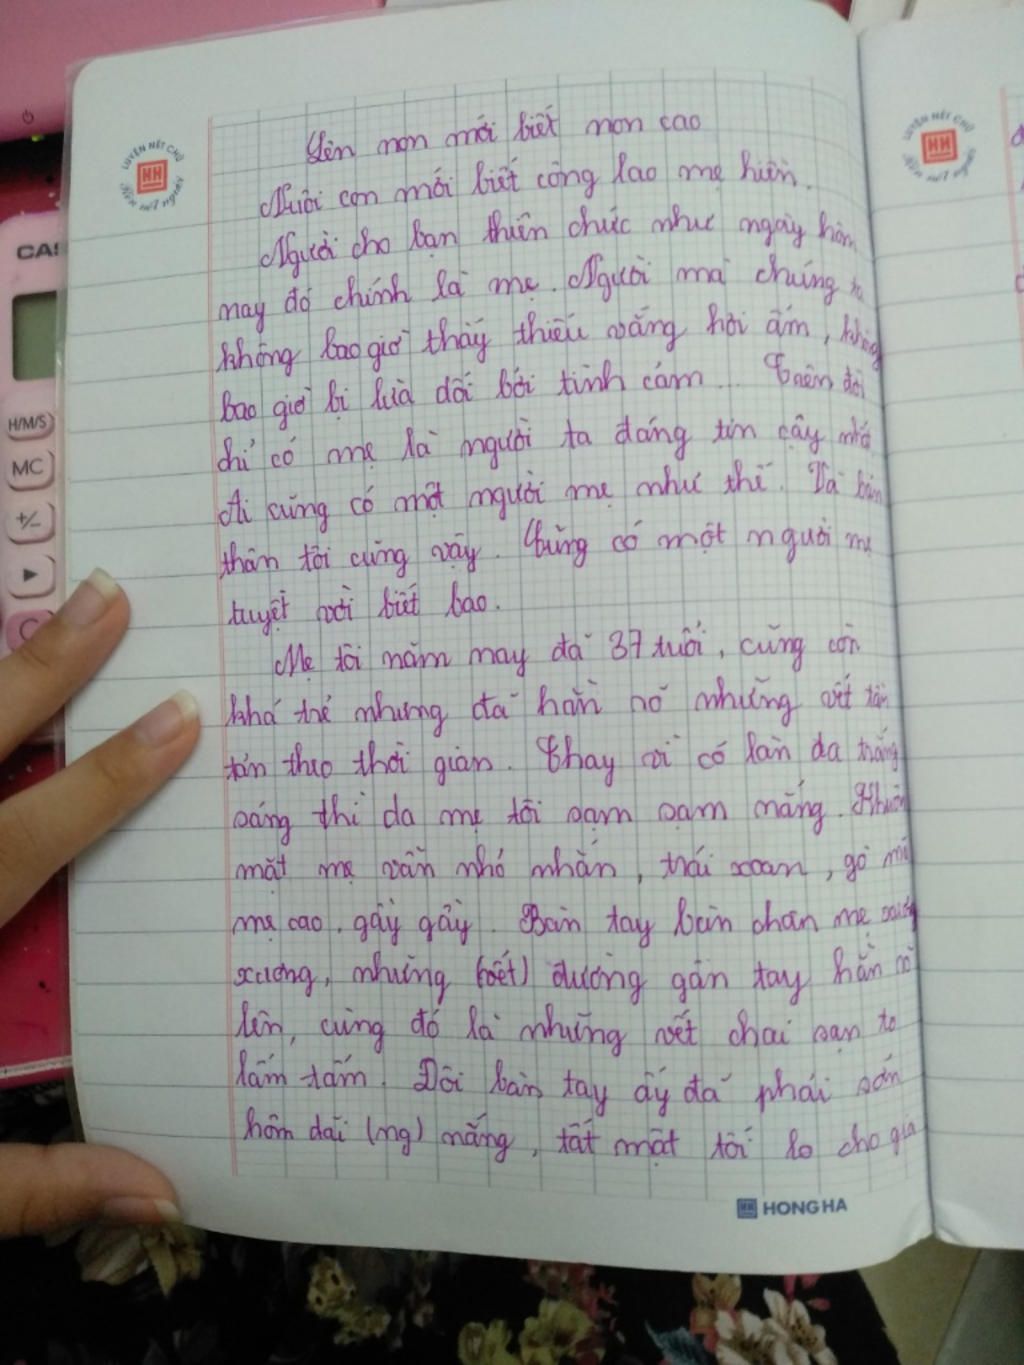 Lên non mới biết non cao
Nuôi con mới biết công lao mẹ hiền.
Người cho bạn thiên chức như ngày hôm
nay đó chính là mẹ. Người mà chúng ta
không bao giờ thấy thiếu vắng hơi ấm, không
bao giờ bị lừa dối bởi tình cảm... Trên đời
chỉ có mẹ là người ta đáng tin cậy nhất
Ai cũng có một người mẹ như thế. Và bản
thân tôi cũng vậy. Cũng có một người mẹ
tuyệt vời biết bao.
Mẹ tôi năm nay đã 37 tuổi, cũng còn
khá trẻ nhưng đã hằn rõ những vết tàn
tán theo thời gian. Thay vì có làn da trắng
sáng thì da mẹ tôi sạm sạm nắng. Khuôn
mặt mẹ vẫn nhỏ nhắn, trái xoan, gò má
mẹ cao, gầy gầy. Bàn tay bàn chân mẹ
xương, những (vết) đường gân tay hằn rõ
lên, cùng đó là những vết chai sạn to
lấm tấm. Đôi bàn tay ấy đã phải sớm
hôm dãi (ng) nắng, tất mặt tối lo cho gia
HONG HA
LUYỆN NÉT CHỮ
RÈN NẾT NGƯỜI
HH
LUYỆN NÉT CHỮ
RÈN NẾT NGƯỜI
HH
H/M/S
MC
+/-
▶
C